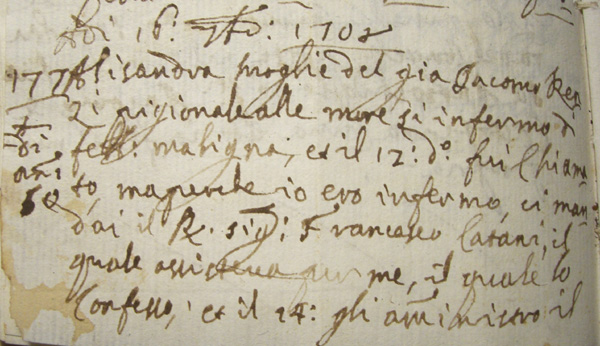 Adi 16: 1708
177 Alisandra moglie del gia Jacomo Ren
zi pigionale alle mure si infermo d
di febb: maligna, et il 12: d.o fui Chiama
anni to, ma perche io ero infermo, ci man
60 dai il R. sig: Francesco Catani, il
quale assisteva per me, il quale lo
Confesso, et il 14: gli amministro il